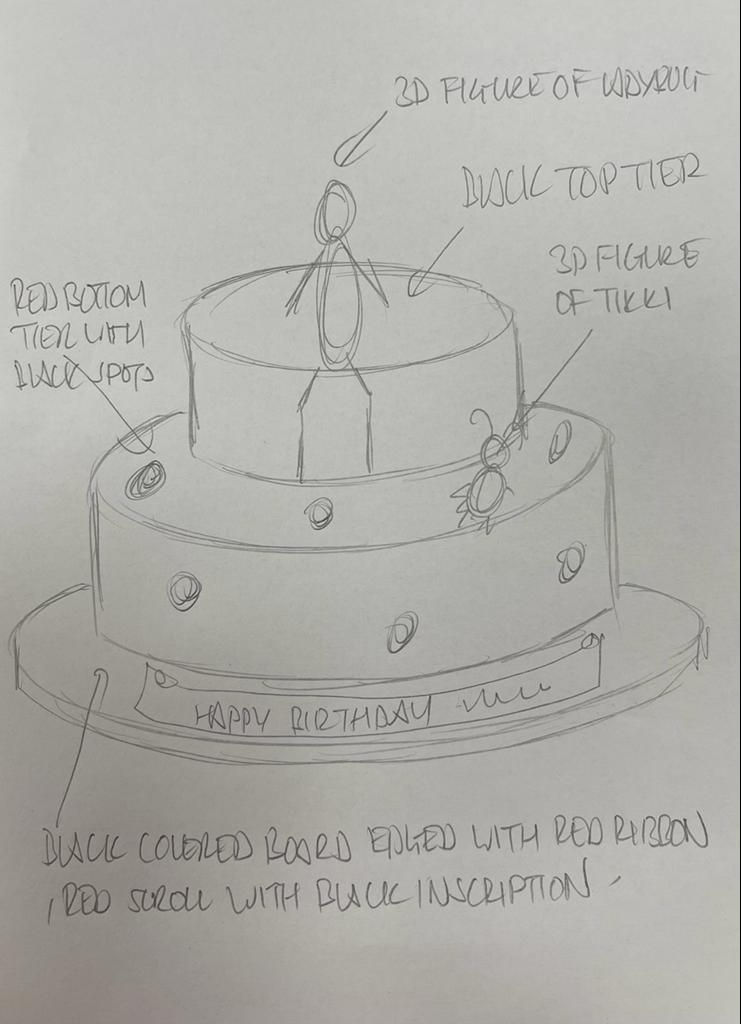 3D FIGURE OF LADYBUG
BLACK TOP TIER
3D FIGURE
OF TIKKI
RED BOTTOM
TIER WITH
BLACK SPOTS
HAPPY BIRTHDAY
BLACK COVERED BOARD EDGED WITH RED RIBBON
, RED SCROLL WITH BLACK INSCRIPTION -